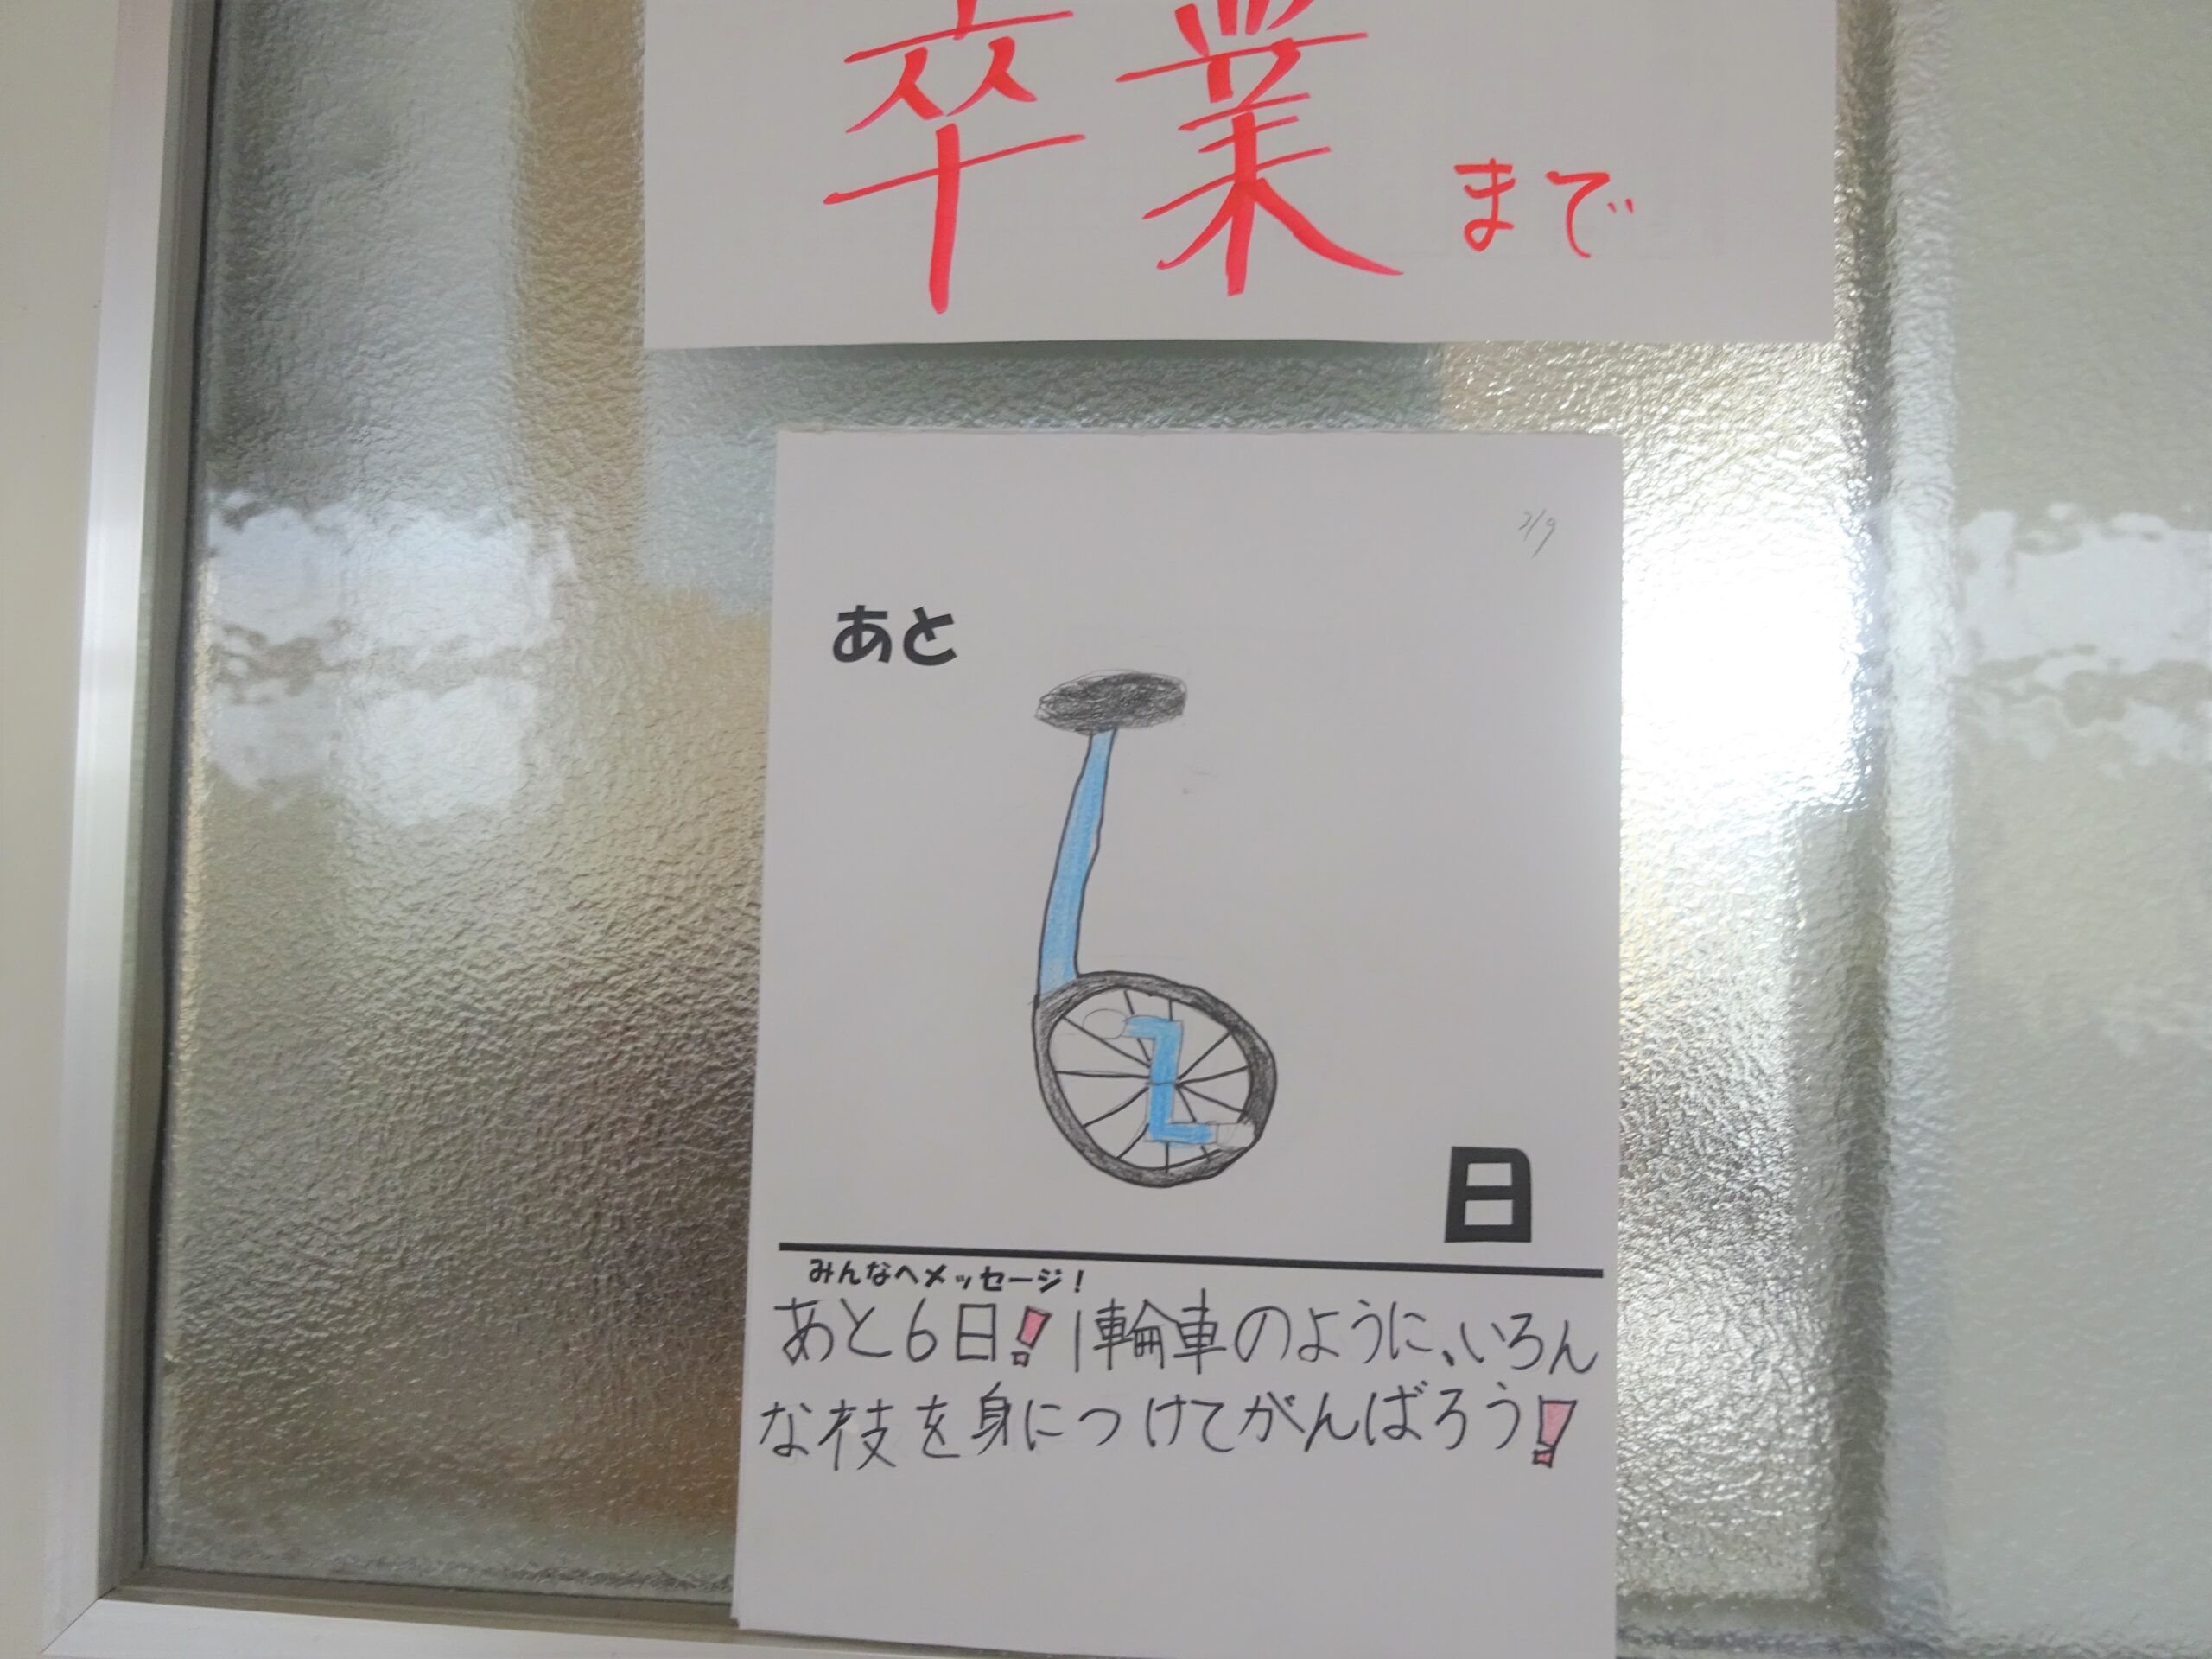 卒業まで
3/9
あと
日
みんなへメッセージ！
あと6日！1輪車のように、いろん
な枝を身につけてがんばろう！